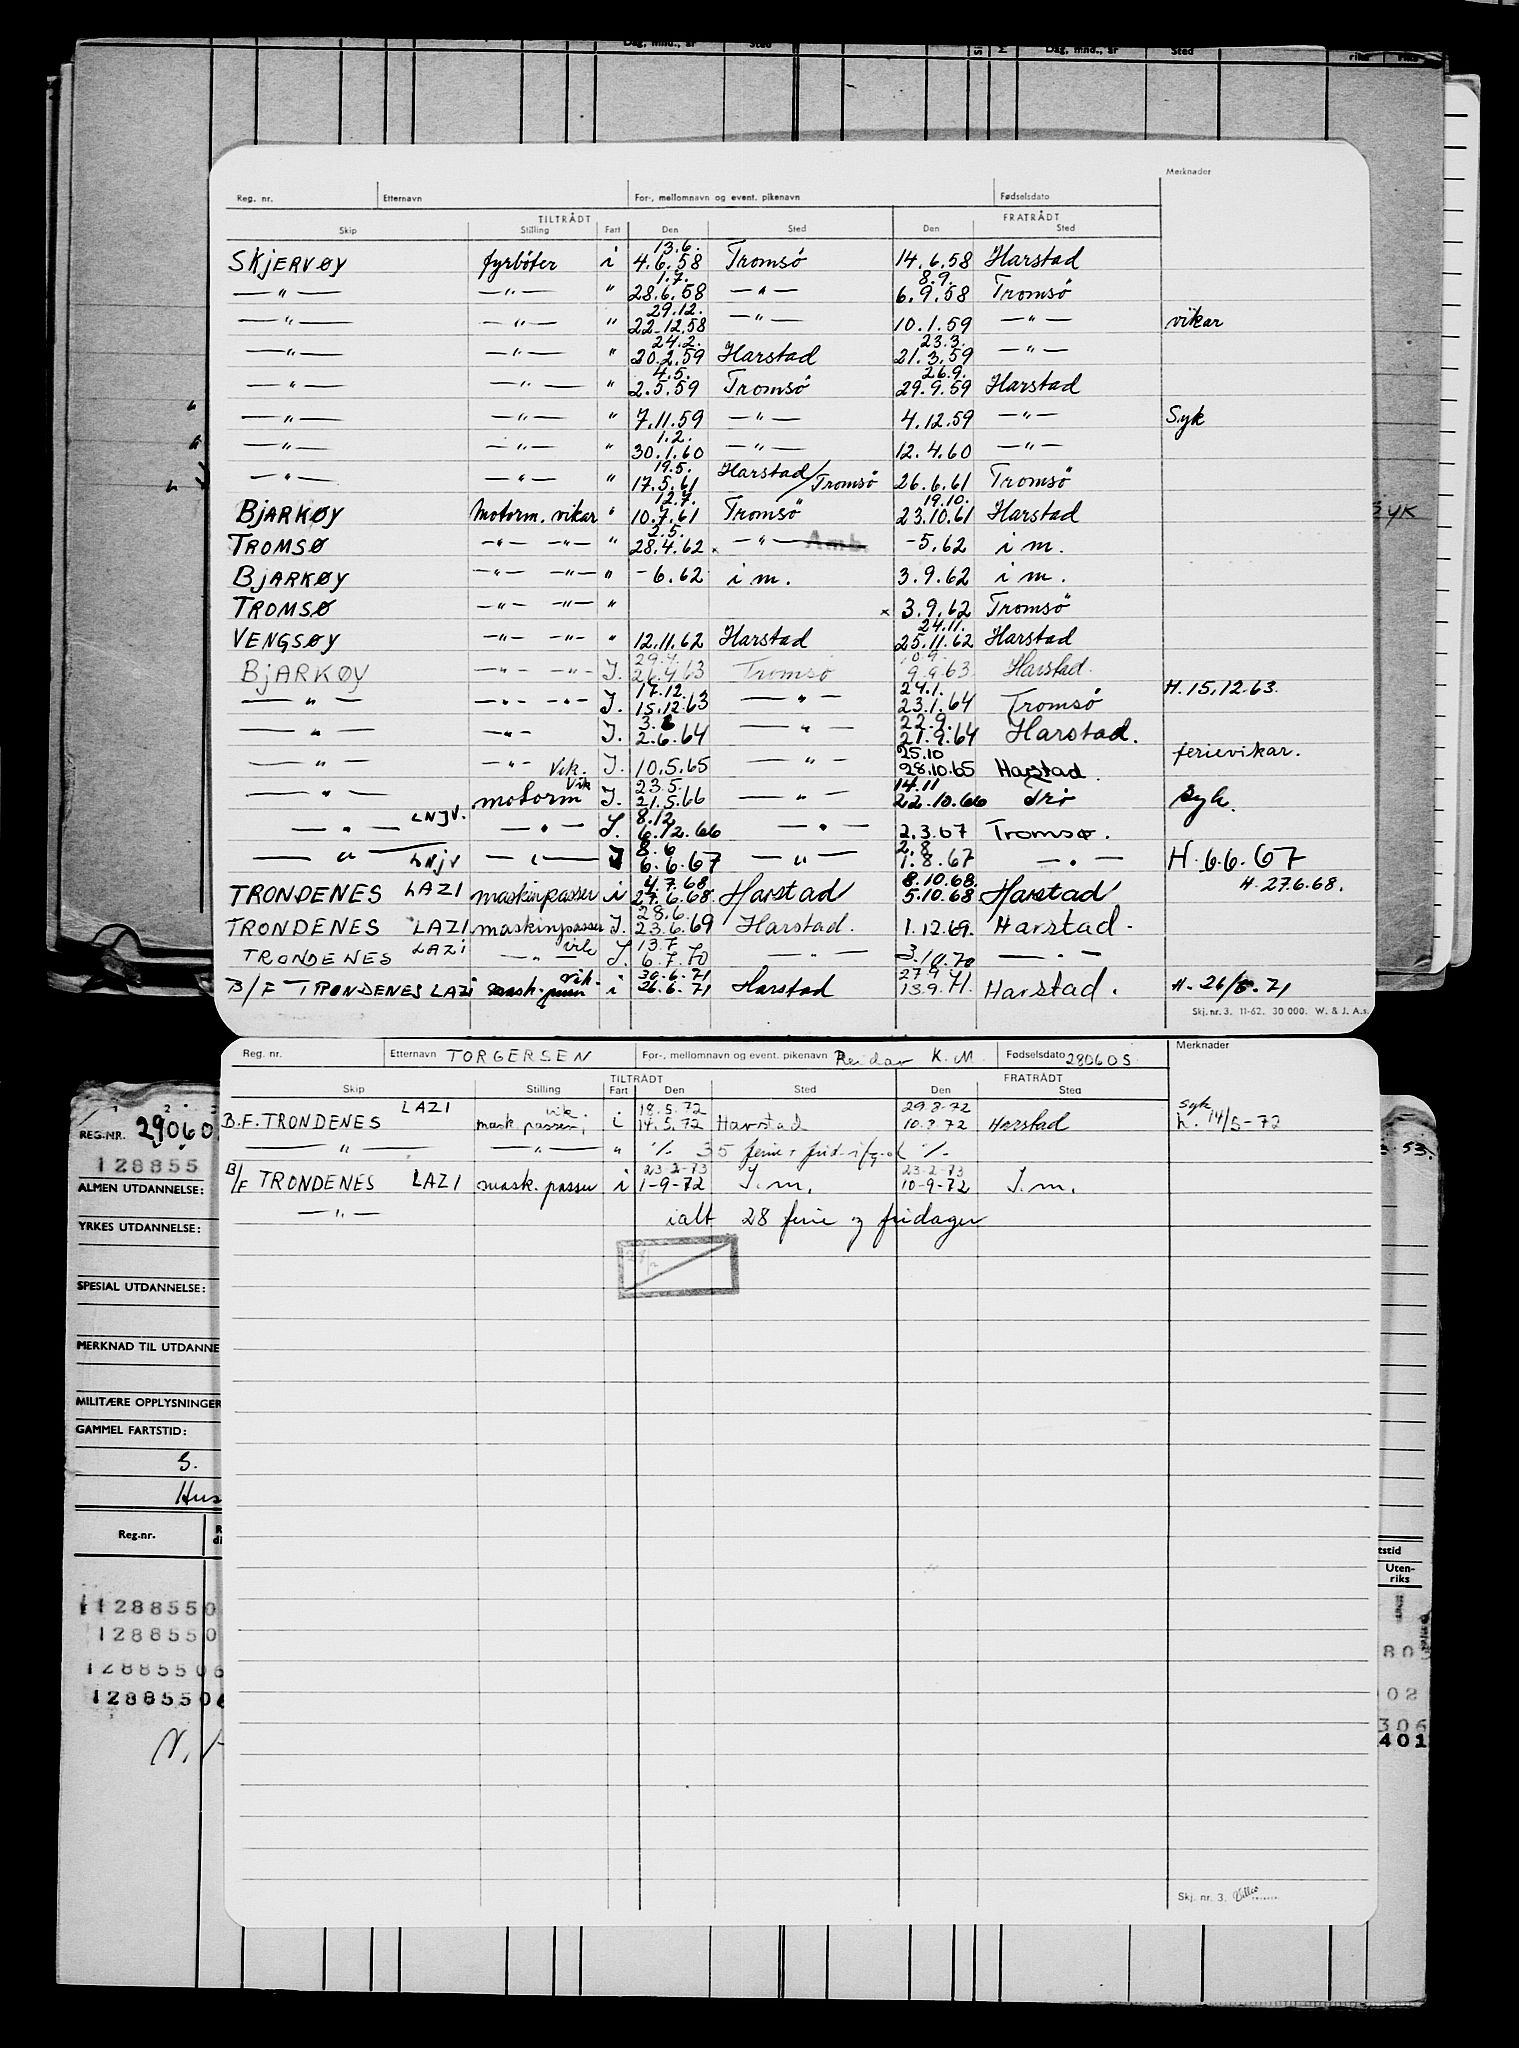 Dag, mnd., år Sted Dag, mnd., år Sted
Merknader
Reg. nr. Etternavn For-, mellomnavn og event. pikenavn Fødselsdato
TILTRÅDT FRATRÅDT
Skip Stilling Fart Den Sted Den Sted
13.6.
SKJERVØY fyrböter i 4.6.58 Tromsö 14.6.58 Harstad
1.7. 8.9.
—"— —"— " 28.6.58 —"— 6.9.58 Tromsö
29.12.
—"— —"— " 22.12.58 —"— 10.1.59 —"— vikar
24.2. 23.3.
—"— —"— " 20.2.59 Harstad 21.3.59 —"—
4.5. 26.9.
—"— —"— " 2.5.59 Tromsö 29.9.59 Harstad
—"— —"— " 7.11.59 —"— 4.12.59 —"— Syk
1.2.
—"— —"— " 30.1.60 —"— 12.4.60 —"—
19.5.
—"— —"— " 17.5.61 Harstad/Tromsö 26.6.61 Tromsö
12.7. 19.10.
BJARKØY Motorm. vikar " 10.7.61 Tromsö 23.10.61 Harstad
2.5.
TROMSØ —"— —"— " 28.4.62 x —"— Amb. -5.62 i m.
BJARKØY —"— —"— " -6.62 i m. 3.9.62 i m.
TROMSØ —"— —"— " x 3.9.62 Tromsö
24.11.
VENGSØY —"— —"— " 12.11.62 Harstad 25.11.62 Harstad
29.4.
BJARKØY —"— —"— I. 26.4.63 Tromsö 9.9.63 Harstad.
17.12. 24.1. H. 15.12.63.
—"— —"— —"— I. 15.12.63 —"— 23.1.64 Tromsö
22.9.
—"— —"— I. 2.6.64 —"— 21.9.64 Harstad.
25.10 ferievikar.
—"— —"— Vik. I. 10.5.65 —"— 28.10.65 Harstad.
Vik 23.5. 14.11
—"— motorm I. 21.5.66 —"— 22.10.66 Syk.
LNJV. 8.12
—"— —"— I. 6.12.66 —"— 2.3.67 Tromsø.
8.6 2.8
—"— LNJV —"— I 6.6.67 —"— 1.8.67 —"— H. 6.6.67
4.7.68 8.10.68. H. 27.6.68.
TRONDENES LAZI maskinpasser i 27.6.68. Harstad 5.10.68 Harstad
28.6.
TRONDENES LAZI maskinpasser I. 23.6.69 Harstad. 1.12.69. Harstad.
13.7
TRONDENES LAZI —"— vik I. 6.7.70 —"— 3.10.70 —"—
vik. 30.6.71 27.9
B/F TRONDENES LAZI mask. passer i 26.6.71 Harstad 13.9.71. Harstad. H. 26/6.71
Skj. nr. 3. 11-62. 30 000. W. & J. A.s.
Merknader
Reg. nr. Etternavn TORGERSEN For-, mellomnavn og event. pikenavn Reidar K. M. Fødselsdato 280605
TILTRÅDT FRATRÅDT
Skip Stilling Fart Den Sted Den Sted
LAZI vik. 18.5.72 29.8.72 Syk
B.F. TRONDENES mask passer, i 14.5.72 Harstad 10.8.72 Harstad h. 14/5-72
—"— —"— " 35 ferie
23-2-73 23-2-73
B/F TRONDENES LAZI mask. passer i 1-9-72 I.m. 10-9-72 I.m.
—"— ialt 28 ferie og fridager
Skj. nr. 3.
REG.NR. 29060
128855
ALMEN UTDANNELSE:
YRKES UTDANNELSE:
SPESIAL UTDANNELSE:
MERKNAD TIL UTDANNE
MILITÆRE OPPLYSNINGER
GAMMEL FARTSTID:
S.
Hus
Reg.nr.
tstid
Uten-
riks
1288550
1288550
12885506
12885506
802
02
306
401